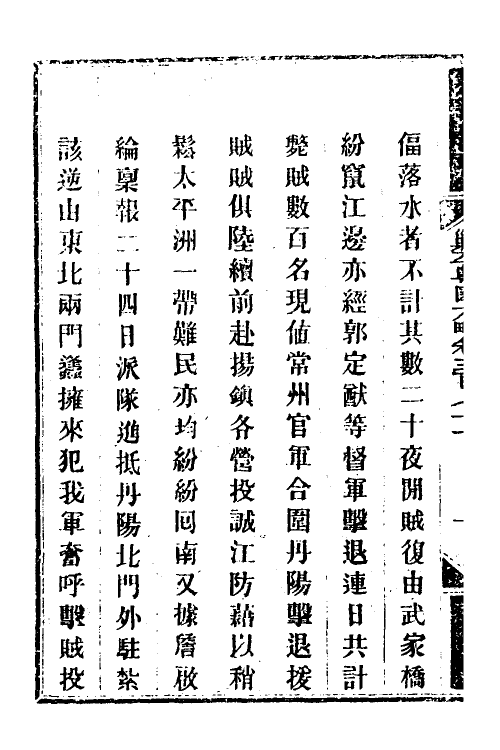 偪落水者不計其數二十夜間賊復由武家橋
紛竄江邊亦經郭定猷等督軍擊退連日共計
斃賊數百名現値常州官軍合圍丹陽擊退援
賊賊俱陸續前赴揚鎭各營投誠江防藉以稍
鬆太平洲一帶難民亦均紛紛囘南又據詹啟
綸稟報二十四日派隊進抵丹陽北門外駐紮
該逆山東北兩門蠭擁來犯我軍奮呼擊賊投